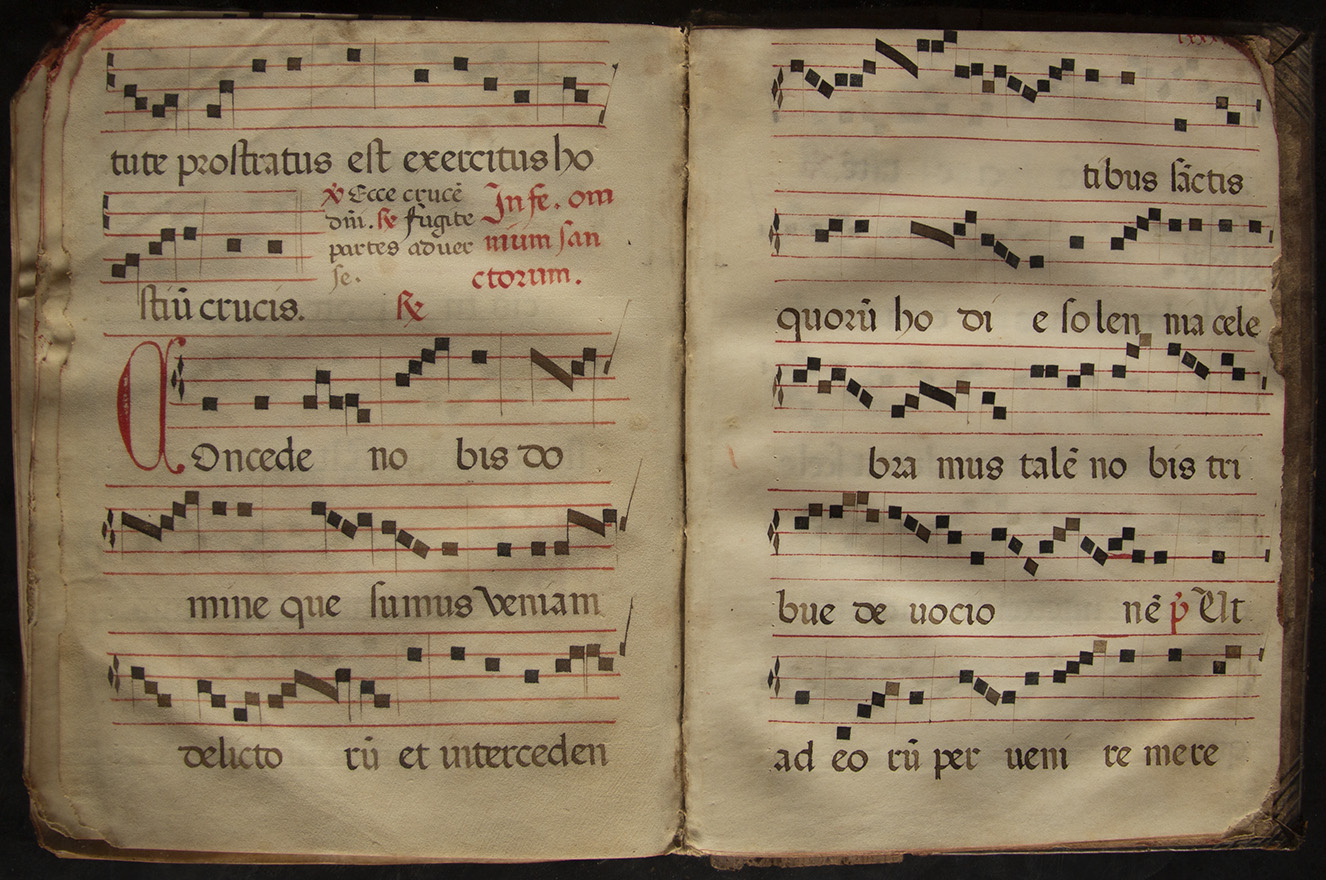 tute prostratus est exercitus ho
℣ Ecce crucē
dn̄i. ℟ fugite
partes aduer
se.
In fe. om
nium san
ctorum.
stiū crucis. ℟
COncede no bis do
mine que sumus veniam
delicto rū et interceden
tibus sāctis
quorū ho di e solen nia cele
bra mus talē no bis tri
bue de uocio nē p̄ Ut
ad eo rū per ueni re mere